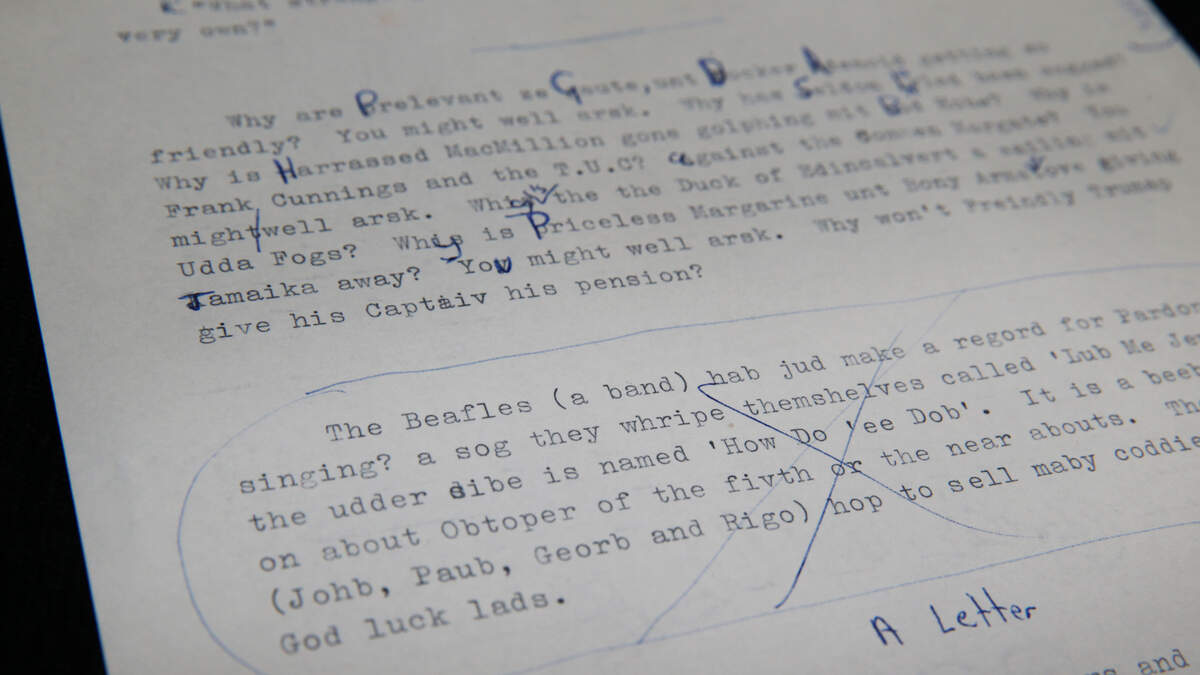 "What
very own?"
Why are Prelevant ze Gaute, unt Docker Adenoid getting so
friendly? You might well arsk. Why has Seldom Cried been
Why is Harrassed MacMillion gone golphing mit Bod Hohn? Why is
Frank Cunnings and the T.U.C? against the Common Margate? You
might well arsk. Why is the the Duck of Edincalvert a sailing mit
Udda Fogs? Why is Priceless Margarine unt Bony Armstove giving
Jamaika away? You might well arsk. Why won't Freindly Trumap
give his Captaiv his pension?
The Beafles (a band) hab jud make a regord for Pardor
singing? a sog they whripe themshelves called 'Lub Me Je
the udder dibe is named 'How Do 'ee Dob'. It is a beeb
on about Obtoper of the fivth or the near abouts. Th
(Johb, Paub, Georb and Rigo) hop to sell maby coddie
God luck lads.
A Letter
and